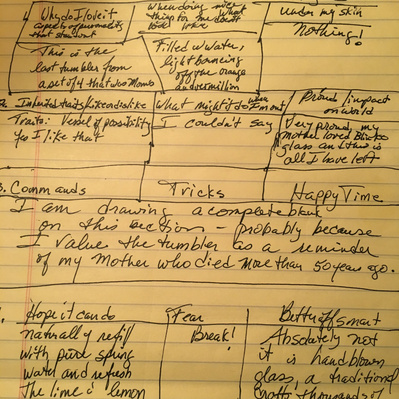 Why do I love it
aspect of personality
that stands out
When doing nice
thing for me
look like
under my skin
Nothing!
This is the
last tumbler from
a set of 4 that was Moms
Filled w/water,
light bouncing
off the orange
and vermillion
2. Inherited traits like or dislike
What might it do
Proud/impact
on world
Traits: Vessel of possibility
Yes I like that
I couldn't say
Very proud, my
mother loved
glass and this is
all I have left
3. Commands
Tricks
Happy Time
I am drawing a complete blank
on this section - probably because
I value the tumbler as a reminder
of my Mother who died more than 50 years ago.
Hope it can do
Fear
Better off smart
naturally refill
with pure spring
water and refresh
the lime & lemon
Break!
Absolutely not
it is handblown
glass, a traditional
craft thousands of